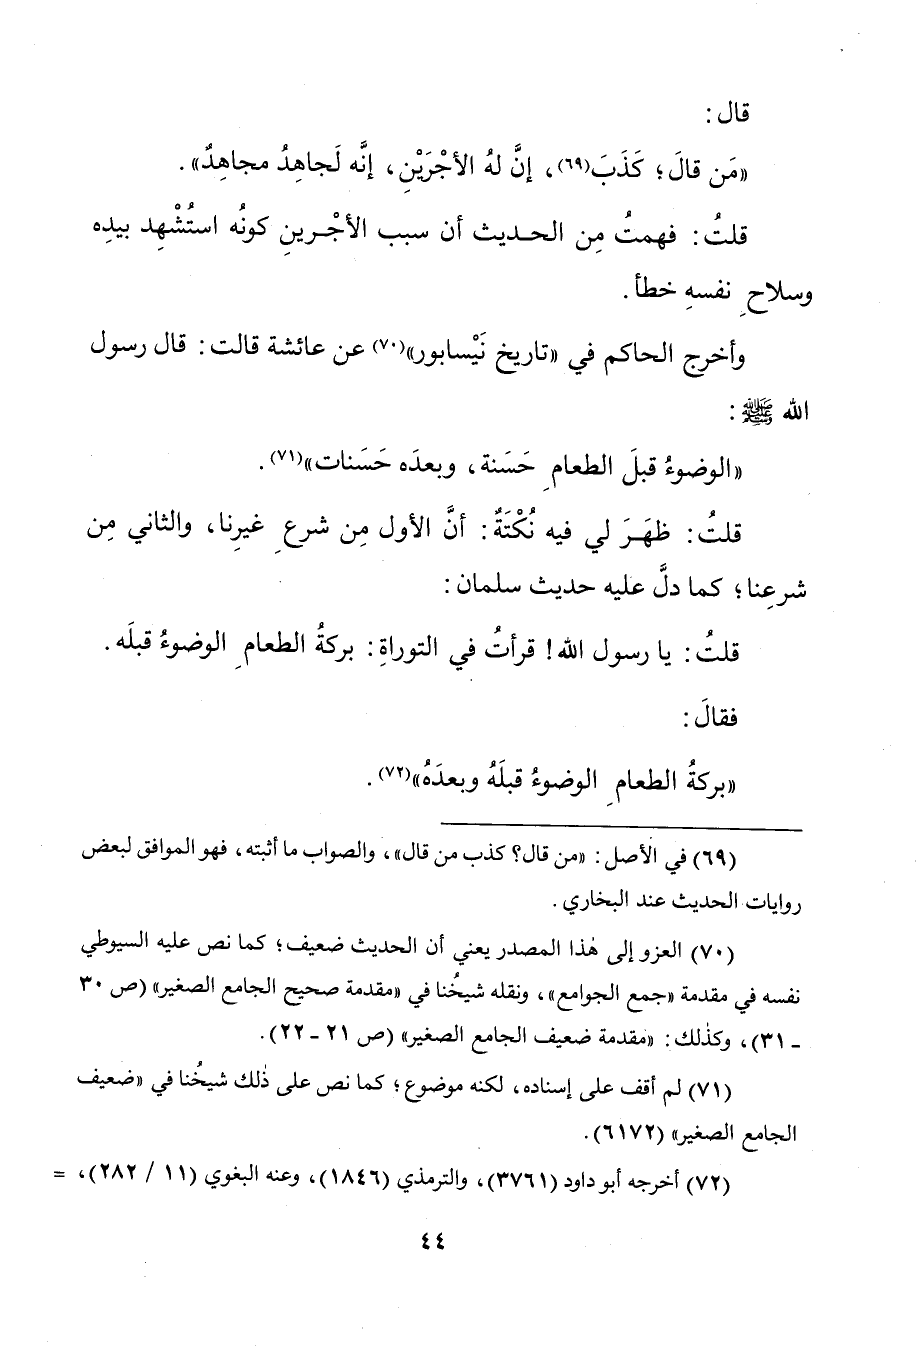 قال :
«مَن قالَ ؛ كَذَبَ(٦٩) ، إنَّ لهُ الأجْرَيْنِ ، إنَّه لَجاهِدٌ مجاهِدٌ» .
قلتُ : فهمتُ مِن الحديث أن سبب الأجْرينِ كونُه استُشْهِد بيدِه
وسلاحِ نفسهِ خطأ .
وأخرج الحاكم في «تاريخ نَيْسابور»(٧٠) عن عائشة قالت : قال رسول
الله ﷺ :
«الوضوءُ قبلَ الطعامِ حَسَنة ، وبعدَه حَسَنات»(٧١) .
قلتُ : ظَهَرَ لي فيه نُكْتَةٌ : أنَّ الأول مِن شرعِ غيرِنا ، والثاني مِن
شرعِنا ؛ كما دلَّ عليه حديث سلمان :
قلتُ : يا رسول الله ! قرأتُ في التوراةِ : بركةُ الطعامِ الوضوءُ قبلَه .
فقالَ :
«بركةُ الطعامِ الوضوءُ قبلَهُ وبعدَهُ»(٧٢) .
(٦٩) في الأصل : «من قال؟ كذب من قال» ، والصواب ما أثبته ، فهو الموافق لبعض
روايات الحديث عند البخاري .
(٧٠) العزو إلى هٰذا المصدر يعني أن الحديث ضعيف ؛ كما نص عليه السيوطي
نفسه في مقدمة «جمع الجوامع» ، ونقله شيخُنا في «مقدمة صحيح الجامع الصغير» (ص ٣٠
ـ ٣١) ، وكذٰلك : «مقدمة ضعيف الجامع الصغير» (ص ٢١ ـ ٢٢) .
(٧١) لم أقف على إسناده ، لكنه موضوع ؛ كما نص على ذٰلك شيخُنا في «ضعيف
الجامع الصغير» (٦١٧٢) .
(٧٢) أخرجه أبو داود (٣٧٦١) ، والترمذي (١٨٤٦) ، وعنه البغوي (١١ / ٢٨٢) ، =
٤٤